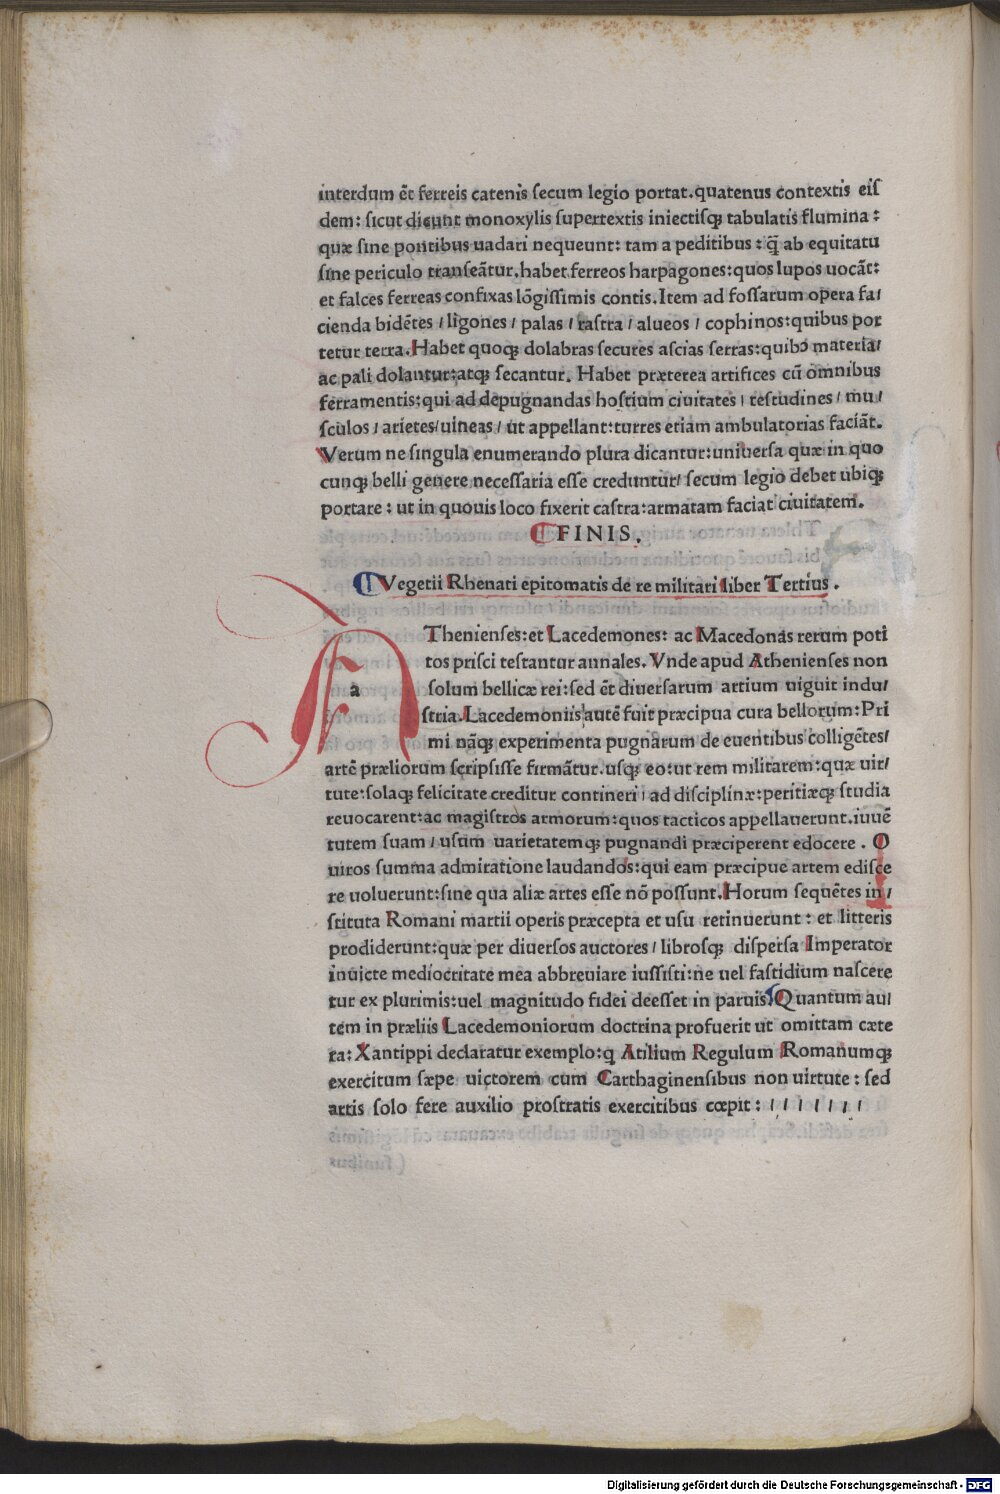 interdum ēt ferreis catenis ſecum legio portat.quatenus contextis eiſ
dem: ſicut dicunt monoxylis ſupertextis iniectiſqꝫ tabulatis flumina:
quæ ſine pontibus uadari nequeunt: tam a peditibus: q̄ ab equitatu
ſine periculo tranſeātur.habet ferreos harpagones:quos lupos uocāt:
et falces ferreas confixas lōgiſſimis contis.Item ad foſſarum opera fa/
cienda bidētes/ligones/palas/raſtra/alueos/cophinos:quibus por
tetur terra.Habet quoqꝫ dolabras ſecures aſcias ſerras:quibꝰ materia/
ac pali dolantur:atqꝫ ſecantur. Habet præterea artifices cū omnibus
ferramentis:qui ad depugnandas hoſtium ciuitates/teſtudines/mu/
ſculos/arietes/uineas/ut appellant:turres etiam ambulatorias faciāt.
Verum ne ſingula enumerando plura dicantur:uniuerſa quæ in quo
cunqꝫ belli genere neceſſaria eſſe creduntur/ſecum legio debet ubiqꝫ
portare: ut in quouis loco fixerit caſtra:armatam faciat ciuitatem.
FINIS.
Vegetii Rhenati epitomatis de re militari liber Tertius.
AThenienſes:et Lacedemones: ac Macedonas rerum poti
a
tos priſci teſtantur annales. Vnde apud Athenienſes non
ſolum bellicæ rei:ſed ēt diuerſarum artium uiguit indu/
ſtria.Lacedemoniis autē fuit præcipua cura bellorum:Pri
mi nāqꝫ experimenta pugnarum de euentibus colligētes/
artē præliorum ſcripſiſſe firmātur.uſqꝫ eo:ut rem militarem:quæ uir/
tute:ſolaqꝫ felicitate creditur contineri/ad diſciplinæ:peritiæqꝫ ſtudia
reuocarent:ac magiſtros armorum:quos tacticos appellauerunt.iuuē
tutem ſuam/uſum uarietatemqꝫ pugnandi præciperent edocere. O
uiros ſumma admiratione laudandos:qui eam præcipue artem ediſce
re uoluerunt:ſine qua aliæ artes eſſe nō poſſunt.Horum ſequētes in/
ſtituta Romani martii operis præcepta et uſu retinuerunt: et litteris
prodiderunt:quæ per diuerſos auctores/libroſqꝫ diſperſa Imperator
inuicte mediocritate mea abbreuiare iuſſiſti:ne uel faſtidium naſcere
tur ex plurimis:uel magnitudo fidei deeſſet in paruis.Quantum au/
tem in præliis Lacedemoniorum doctrina profuerit ut omittam cæte
ra: Xantippi declaratur exemplo:q Atilium Regulum Romanumqꝫ
exercitum ſæpe uictorem cum Carthaginenſibus non uirtute: ſed
artis ſolo fere auxilio proſtratis exercitibus cœpit: / / / / / / /
Digitalisierung gefördert durch die Deutsche Forschungsgemeinschaft - DFG